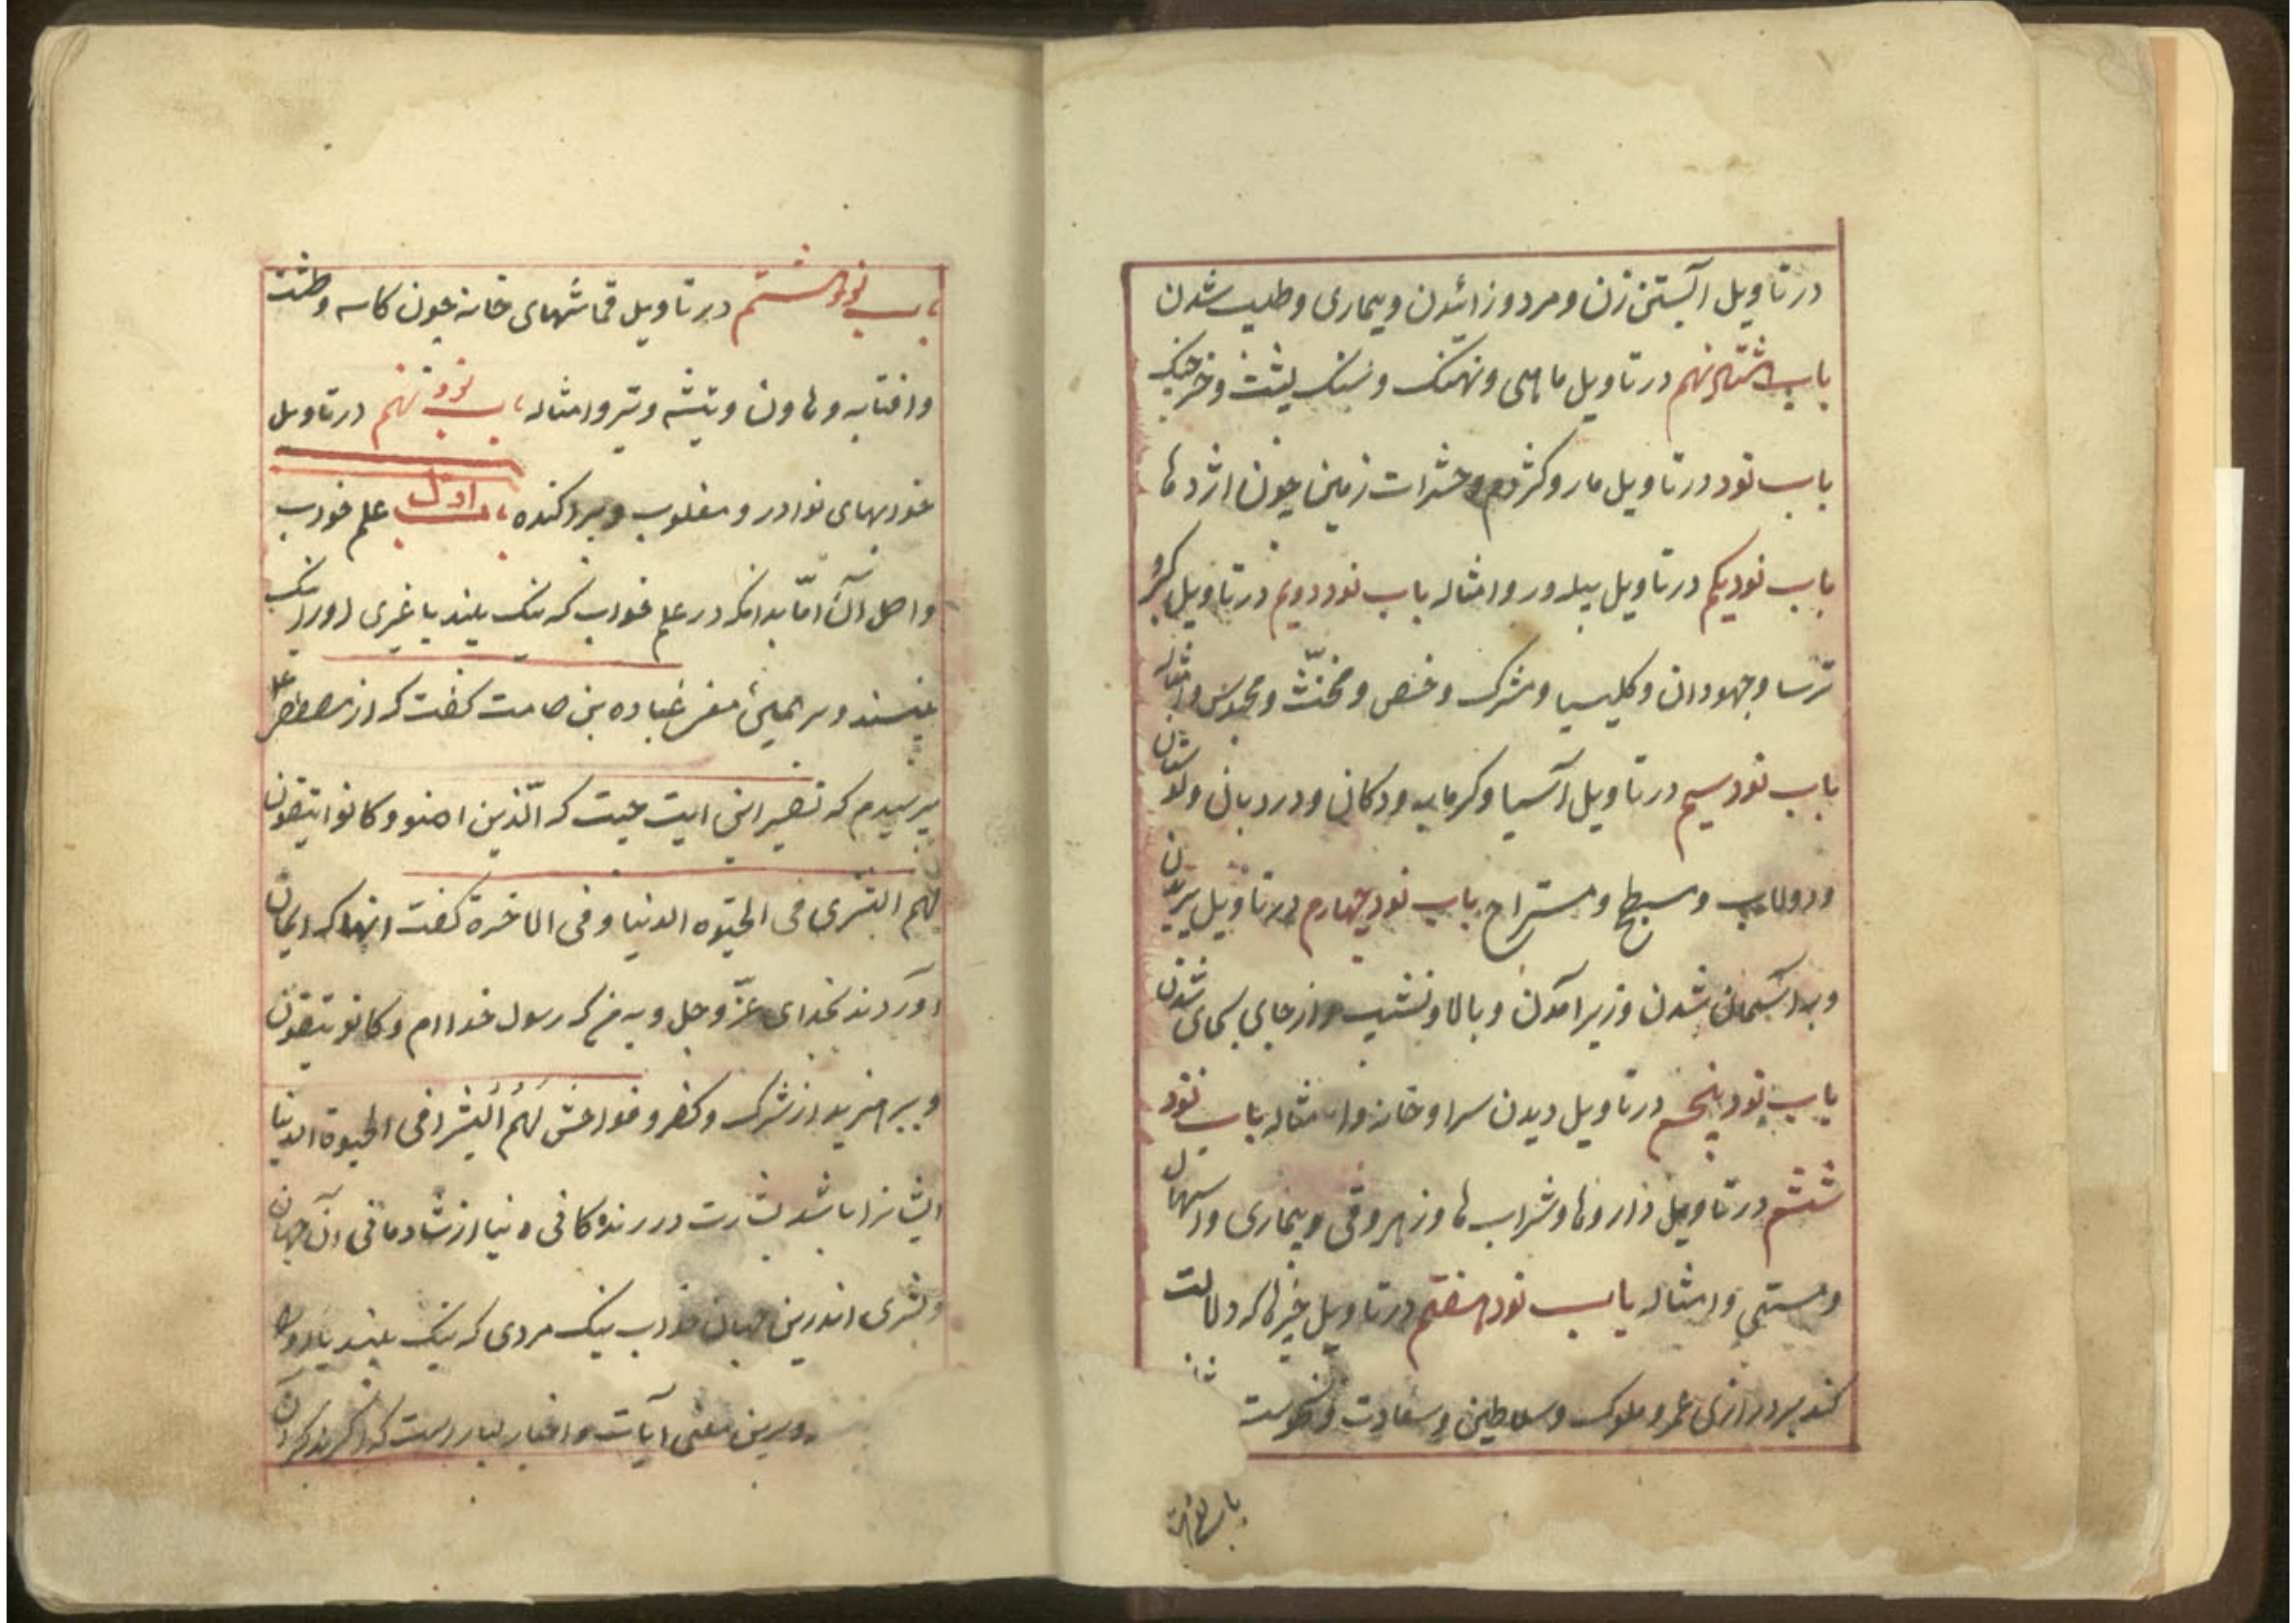 در تاویل آبستن زن و مرد و زائدن و بیماری و طبیب شدن
باب هشتاد نهم در تاویل ماهی و نهنک و سنک پشت و خرچنک
باب نود در تاویل مار و کژدم و حشرات زمین چون اژدها
باب نود یکم در تاویل پیله ور و امثاله باب نود دویم در تاویل کبر و
ترسا و جهودان و کلیسیا و مشرک و خنصی و مخنّث و محبوس و امثاله
باب نود سیم در تاویل آسیا و کرمابه و دکانی و در دربان و کوستان
و دولاب و مسطح و مستراح باب نود چهارم در تاویل پریدن
و بر آسمان شدن و زیر آمدن و بالا و نشیب و از جای بجای شدن
باب نود پنجم در تاویل دیدن سرا و خانه و امثاله باب نود
ششم در تاویل داروها و شراب ها و زهر و قی و بیماری و اسهال
و مستی و امثاله باب نود هفتم در تاویل خیرها که دلالت
کند بر درازی عمر و ملوک و سلاطین و سعادت و
باب نود هشتم در تاویل قماشهای خانه چون کاسه و طشت
و افتابه و هاون و تیشه و تبر و امثاله باب نود نهم در تاویل
خوابهای نوادر و مغلوب و پراکنده باب اول علم خواب
و اصل آن امّا بدانکه در علم خواب که نیک بیند یا غیری او را نیک
بیند و بر همین معنی عباده بن صامت کفت که از مصطفی
پرسیدم که تفسیر این ایت چیت که الّذین امنو و کانوا یتقون
لهم البشری فی الحیوه الدنیا و فی الاخرة کفت انها که ایمان
آوردند بخدای عزّ و جل و به من که رسول خدا ام و کانو یتقون
و بپرهیزید از شرک و کفر و فواحش لَهُم اُلبُشرا فی الحیوة الدنیا
ایشانرا باشد بشارت در زندکانی دنیا از شادمانی آن جهان
و بشری اندرین جهان خواب نیک مردی که نیک بیند یا او را
و برین معنی آیات و اخبار بسیار است که
باب نود